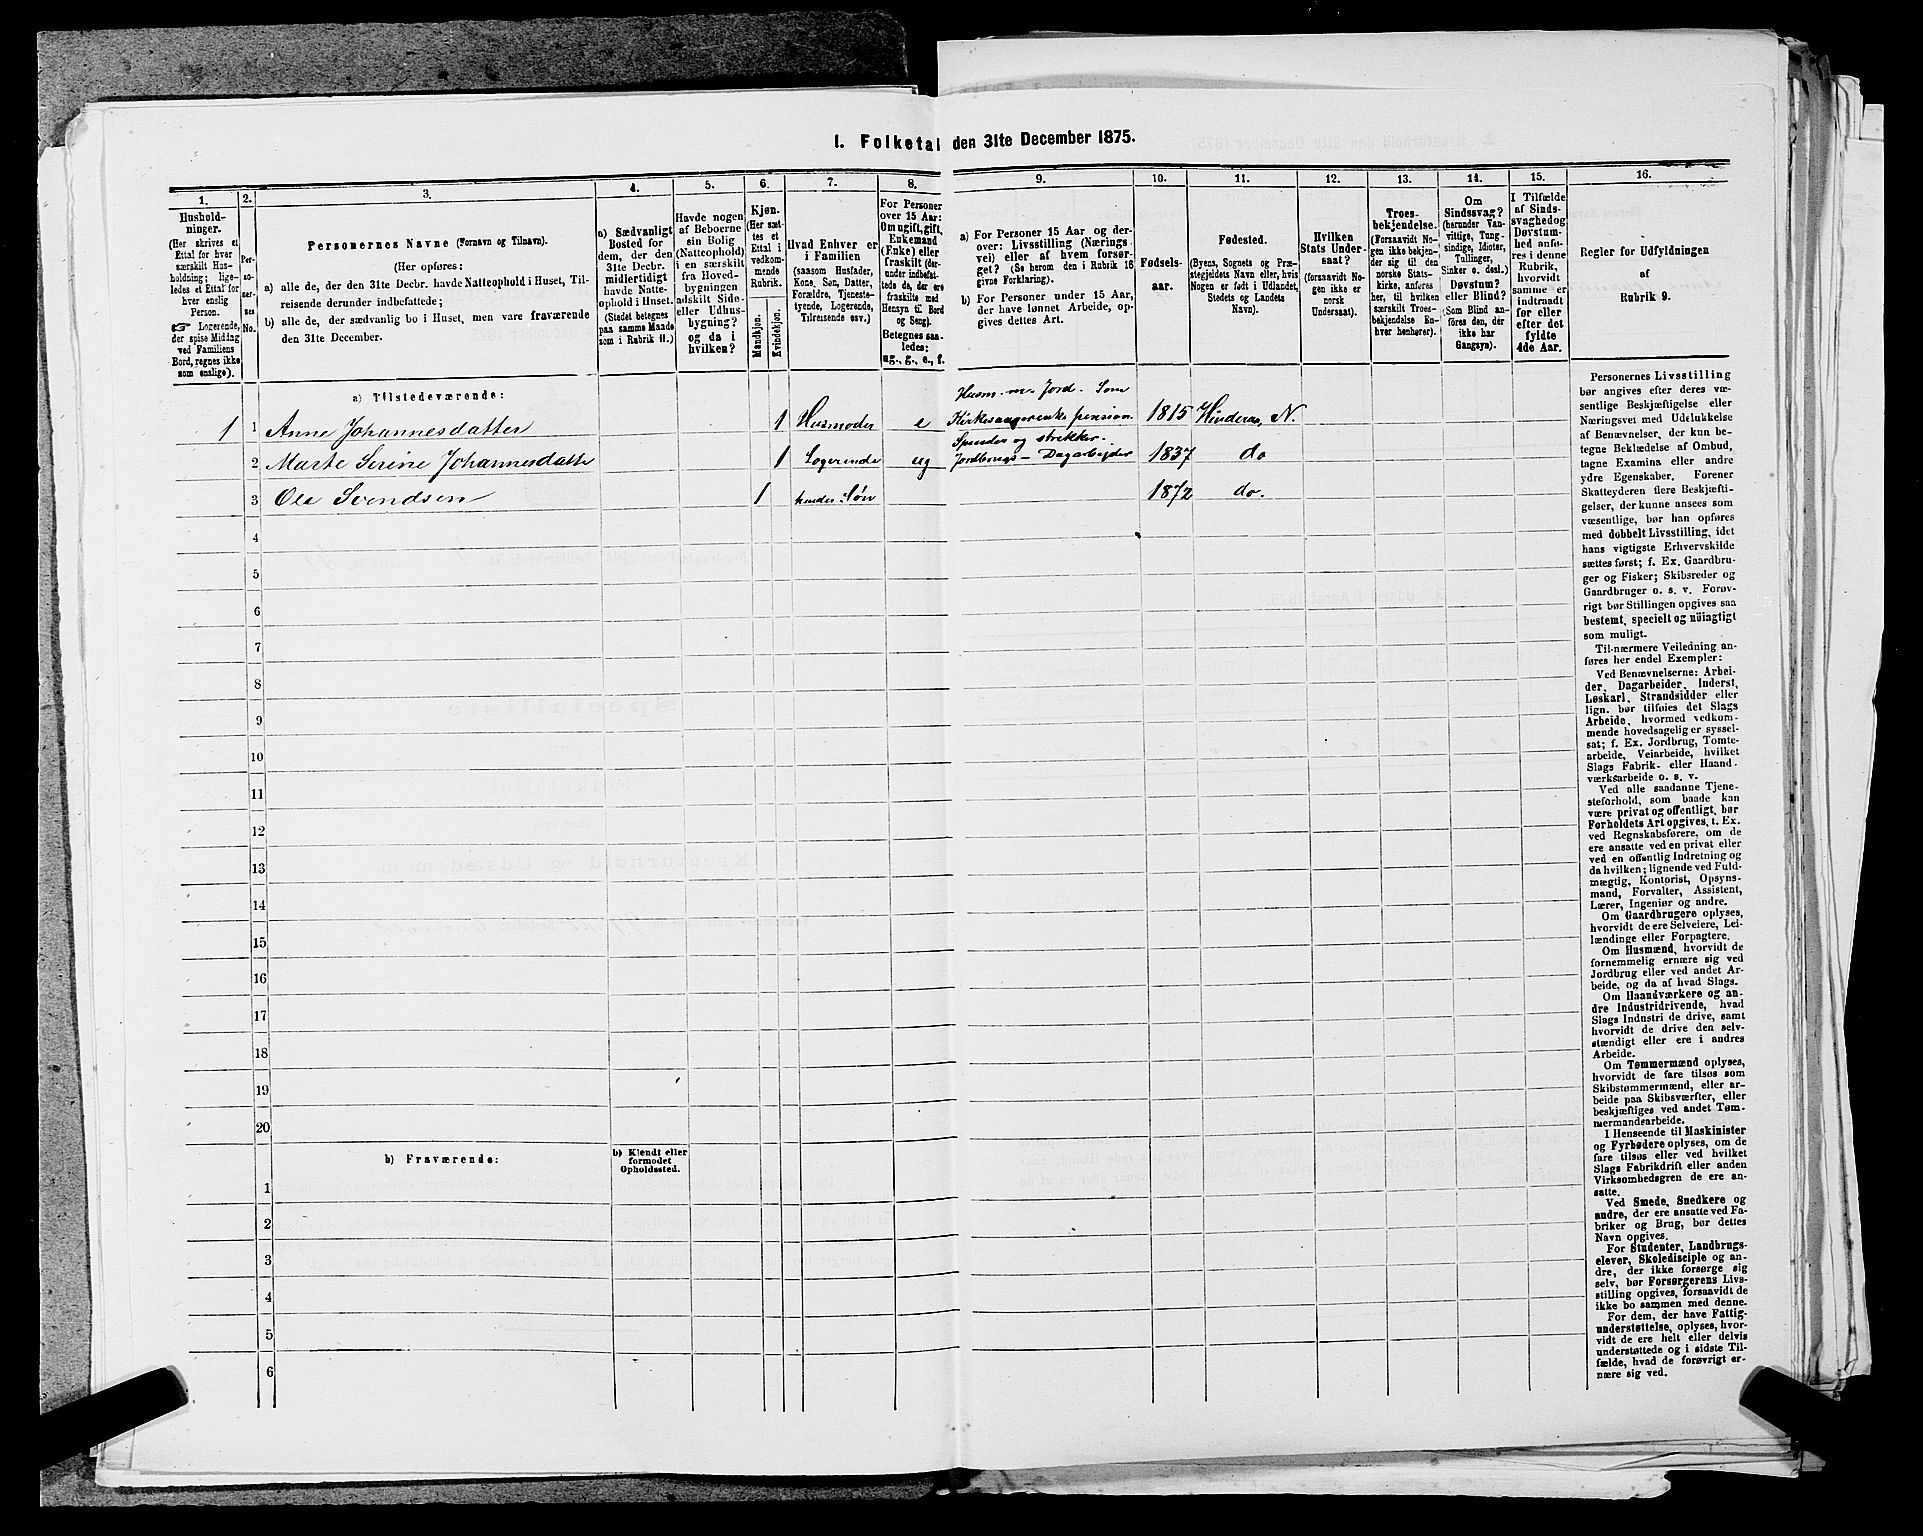 I. Folketal den 31te December 1875.
1.
Hushold-
ninger.
(Her skrives et
Ettal for hver
særskilt Hus-
holdning; lige-
ledes et Ettal for
hver enslig
Person.
☞ Logerende,
der spise Middag
ved Familiens
Bord, regnes ikke
som enslige).
2.
Per-
so-
ner-
nes
No.
3.
Personernes Navne (Fornavn og Tilnavn).
(Her opføres:
a) alle de, der den 31te Decbr. havde Natteophold i Huset, Til-
reisende derunder indbefattede;
b) alle de, der sædvanlig bo i Huset, men vare fraværende
den 31te December.
4.
a) Sædvanligt
Bosted for
dem, der den
31te Decbr.
midlertidigt
havde Natte-
ophold i Huset.
(Stedet betegnes
paa samme Maade
som i Rubrik 11.)
5.
Havde nogen
af Beboerne
sin Bolig
(Natteophold)
i en særskilt
fra Hoved-
bygningen
adskilt Side-
eller Udhus-
bygning?
og da i
hvilken?
6.
Kjøn.
(Her sæt-
tes et
Ettal i
vedkom-
mende
Rubrik.
Mandkjøn.
Kvindekjøn.
7.
Hvad Enhver er
i Familien
(saasom Husfader,
Kone, Søn, Datter,
Forældre, Tjeneste-
tyende, Logerende,
Tilreisende osv.)
8.
For Personer
over 15 Aar:
Om ugift, gift,
Enkemand
(Enke) eller
fraskilt (der-
under indbefat-
tede de, der ere
fraskilte med
Hensyn til Bord
og Seng).
Betegnes saa-
ledes:
ug., g., e., f.
9.
a) For Personer 15 Aar og der-
over: Livsstilling (Nærings-
vei) eller af hvem forsør-
get? (Se herom den i Rubrik 16
givne Forklaring).
b) For Personer under 15 Aar,
der have lønnet Arbeide, op-
gives dettes Art.
10.
Fødsels-
aar.
11.
Fødested.
(Byens, Sognets og Præ-
stegjeldets Navn eller, hvis
Nogen er født i Udlandet,
Stedets og Landets
Navn).
12.
Hvilken
Stats Under-
saat?
(forsaavidt No-
gen ikke er
norsk
Undersaat).
13.
Troes-
bekjendelse.
(Forsaavidt No-
gen ikke bekjen-
der sig til den
norske Stats-
kirke, anføres
her, til hvilken
særskilt Troes-
bekjendelse En-
hver henhører).
14.
Om
Sindssvag?
(herunder Van-
vittige, Tung-
sindige, Idioter,
Tullinger,
Sinker o. desl.)
Døvstum?
eller Blind?
(Som Blind an-
føres den, der
ikke har
Gangsyn).
15.
I Tilfælde
af Sinds-
svaghed og
Døvstum-
hed anfø-
res i denne
Rubrik,
hvorvidt
samme er
indtraadt
før eller
efter det
fyldte
4de Aar.
16.
Regler for Udfyldningen
af
Rubrik 9.
a) Tilstedeværende:
Husm. m. Jord. Som
1 1 Anne Johannesdatter 1 Husmoder e Kirkesangerenke pension. 1815 Hinderaa, N.
Spinder og strikker.
2 Marte Serine Johannesdatte 1 Logerende ug Jordbrugs- Dagarbejder 1837 do
3 Ole Svendsen 1 hendes Søn 1872 do.
4
5
6
7
8
9
10
11
12
13
14
15
16
17
18
19
20
b) Fraværende:
b) Kjendt eller
formodet
Opholdssted.
1
2
3
4
5
6
Personernes Livsstilling
bør angives efter deres væ-
sentlige Beskjæftigelse eller
Næringsvei med Udelukkelse
af Benævnelser, der kun be-
tegne Beklædelse af Ombud,
tagne Examina eller andre
ydre Egenskaber. Forener
Skatteyderen flere Beskjæfti-
gelser, der kunne ansees som
væsentlige, bør han opføres
med dobbelt Livsstilling, idet
hans vigtigste Erhvervskilde
sættes først; f. Ex. Gaardbru-
ger og Fisker; Skibsreder og
Gaardbruger o. s. v. Forøv-
rigt bør Stillingen opgives saa
bestemt, specielt og nøiagtigt
som muligt.
Til nærmere Veiledning an-
føres her endel Exempler:
Ved Benævnelserne: Arbei-
der, Dagarbeider, Inderst,
Løskarl, Strandsidder eller
lign. bør tilføies det Slags
Arbeide, hvormed vedkom-
mende hovedsagelig er syssel-
sat; f. Ex. Jordbrug, Tomte-
arbeide, Veiarbeide, hvilket
Slags Fabrik- eller Haand-
værksarbeide o. s. v.
Ved alle saadanne Tjene-
steforhold, som baade kan
være privat og offentligt, bør
Forholdets Art opgives, t. Ex.
ved Regnskabsførere, om de
ere ansatte ved en privat eller
ved en offentlig Indretning og
da hvilken; lignende ved Fuld-
mægtig, Kontorist, Opsyns-
mand, Forvalter, Assistent,
Lærer, Ingeniør og andre.
Om Gaardbrugere oplyses,
hvorvidt de ere Selveiere, Lei-
lændinge eller Forpagtere.
Om Husmænd, hvorvidt de
fornemmelig ernære sig ved
Jordbrug eller ved andet Ar-
beide, og da af hvad Slags.
Om Haandværkere og an-
dre Industridrivende, hvad
Slags Industri de drive, samt
hvorvidt de drive den selv-
stændigt eller ere i andres
Arbeide.
Om Tømmermænd oplyses,
hvorvidt de fare tilsøs som
Skibstømmermænd, eller ar-
beide paa Skibsværfter, eller
beskjæftiges ved andet Tøm-
mermandsarbeide.
I Henseende til Maskinister
og Fyrbødere oplyses, om de
fare tilsøs eller ved hvilket
Slags Fabrikdrift eller anden
Virksomhedsgren de ere an-
satte.
Ved Smede, Snedkere og
andre, der ere ansatte ved Fa-
briker og Brug, bør dettes
Navn opgives.
For Studenter, Landbrugs-
elever, Skoledisciple og an-
dre, der ikke forsørge sig
selv, bør Forsørgerens Livs-
stilling opgives, forsaavidt de
ikke bo sammen med denne.
For dem, der have Fattig-
understøttelse, oplyses, hvor-
vidt de ere helt eller delvis
understøttede og i sidste Til-
fælde, hvad de forøvrigt er-
nære sig ved.